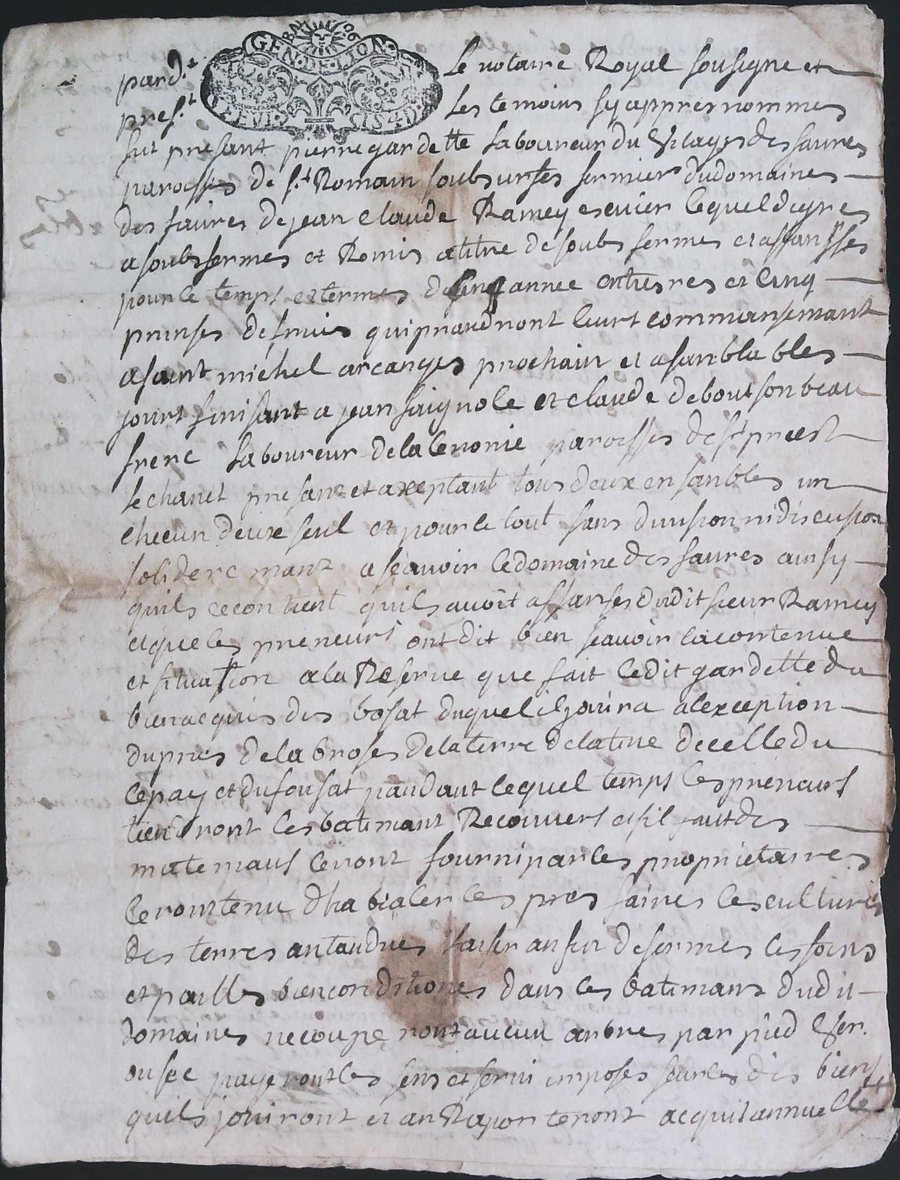 GEN·DE·LION
pard.t le notaire Royal sousigne et
pres.t les temoins sy appres nommes
fut presant pierre gardette laboureur du vilage des faures
paroisses de s.t Romain soubs urfes fermier dudomaines
des faures de jean claude Ramey escuier lequel de gre
a soubsfermes et Remis atitre de soubs fermes et assansses
pour le temps et termes de cinq annee entieres et cinq
prinses de fruis qui prandront leurt commansemant
a saint michel arcanges prochain et a sanblables
jourt finisant a jean saignole et claude debout son beau
frere laboureur de la paroisses de s.t priest
presant et axeptant tous deux ensanbles un
checun deux seul et pour le tout sans division ni discusion
solideremant a scavoir le domaine des faures ainsy
quils ce contient quils avoit assanses dudit sieur Ramey
et que les preneurs ont dit bien scavoir la contenue
et situation a la Reserve que fait ledit gardette du
bien acquies des bosat duquel il jouira alexception
du pres de la broses de la terre de la tine de celle du
et du fousat pandant lequel temps les preneurs
tiendront les batimant Recouvers et sil faut des
materiaus ceront fourni par les proprietaires
ceront tenu dhabialer les pres faires les cultures
des terres antandues les foins
et pailles bien conditiones dans les batimans dudit
domaines ne couperont aucun arbres par pied
payeront les sens et servi imposes seur les dis biens
quils jouiront et an Raporteront acquit annuelle.t